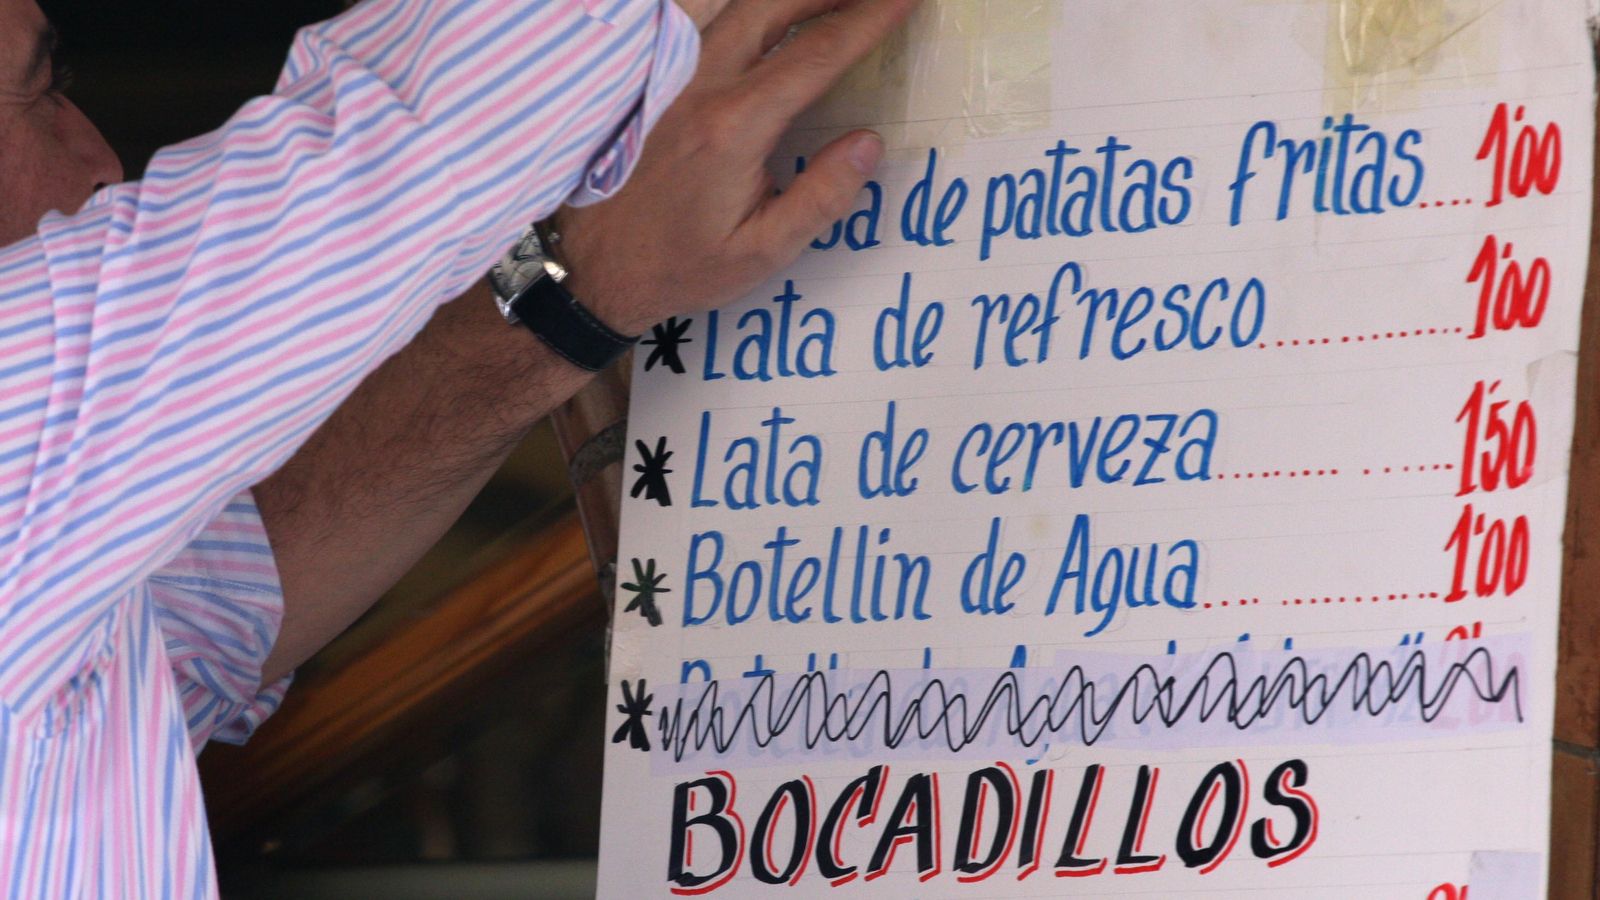 de patatas fritas....1'00
* Lata de refresco.............1'00
* Lata de cerveza.............1'50
* Botellin de Agua..............1'00
*
BOCADILLOS